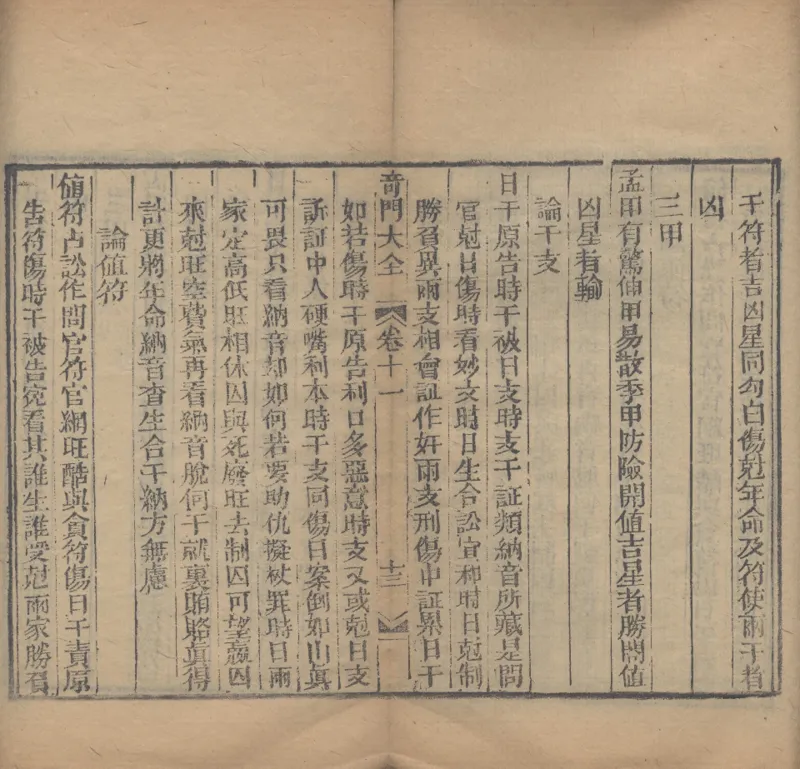 干符者吉凶星同勾白傷尅年命及符使兩干者
凶
三甲
孟甲有驚仲甲易散季甲防險開值吉星者勝閉值
凶星者輸
論干支
日干原告時干被日支時支干証類納音所藏是問
官尅日傷時看妙文時日生合訟宜和時日尅制
勝負異兩支相會証作奸兩支刑傷中証累日干
奇門大全 卷十一 十三
如若傷時干原告利口多惡意時支又或尅日支
訴証中人硬嘴利本時干支同傷日案倒如山真
可畏只看納音却如何若要助仇擬被罪時日兩
家定高低旺相休囚與死廢旺去制囚可望贏囚
來尅旺空費氣再看納音脫何干就裏賄賂真得
計更將年命納音查生合干納方無慮
論值符
值符占訟作問官符官網旺酷與貪符傷日干責原
告符傷時干被告冤看其誰生誰受尅兩家勝負